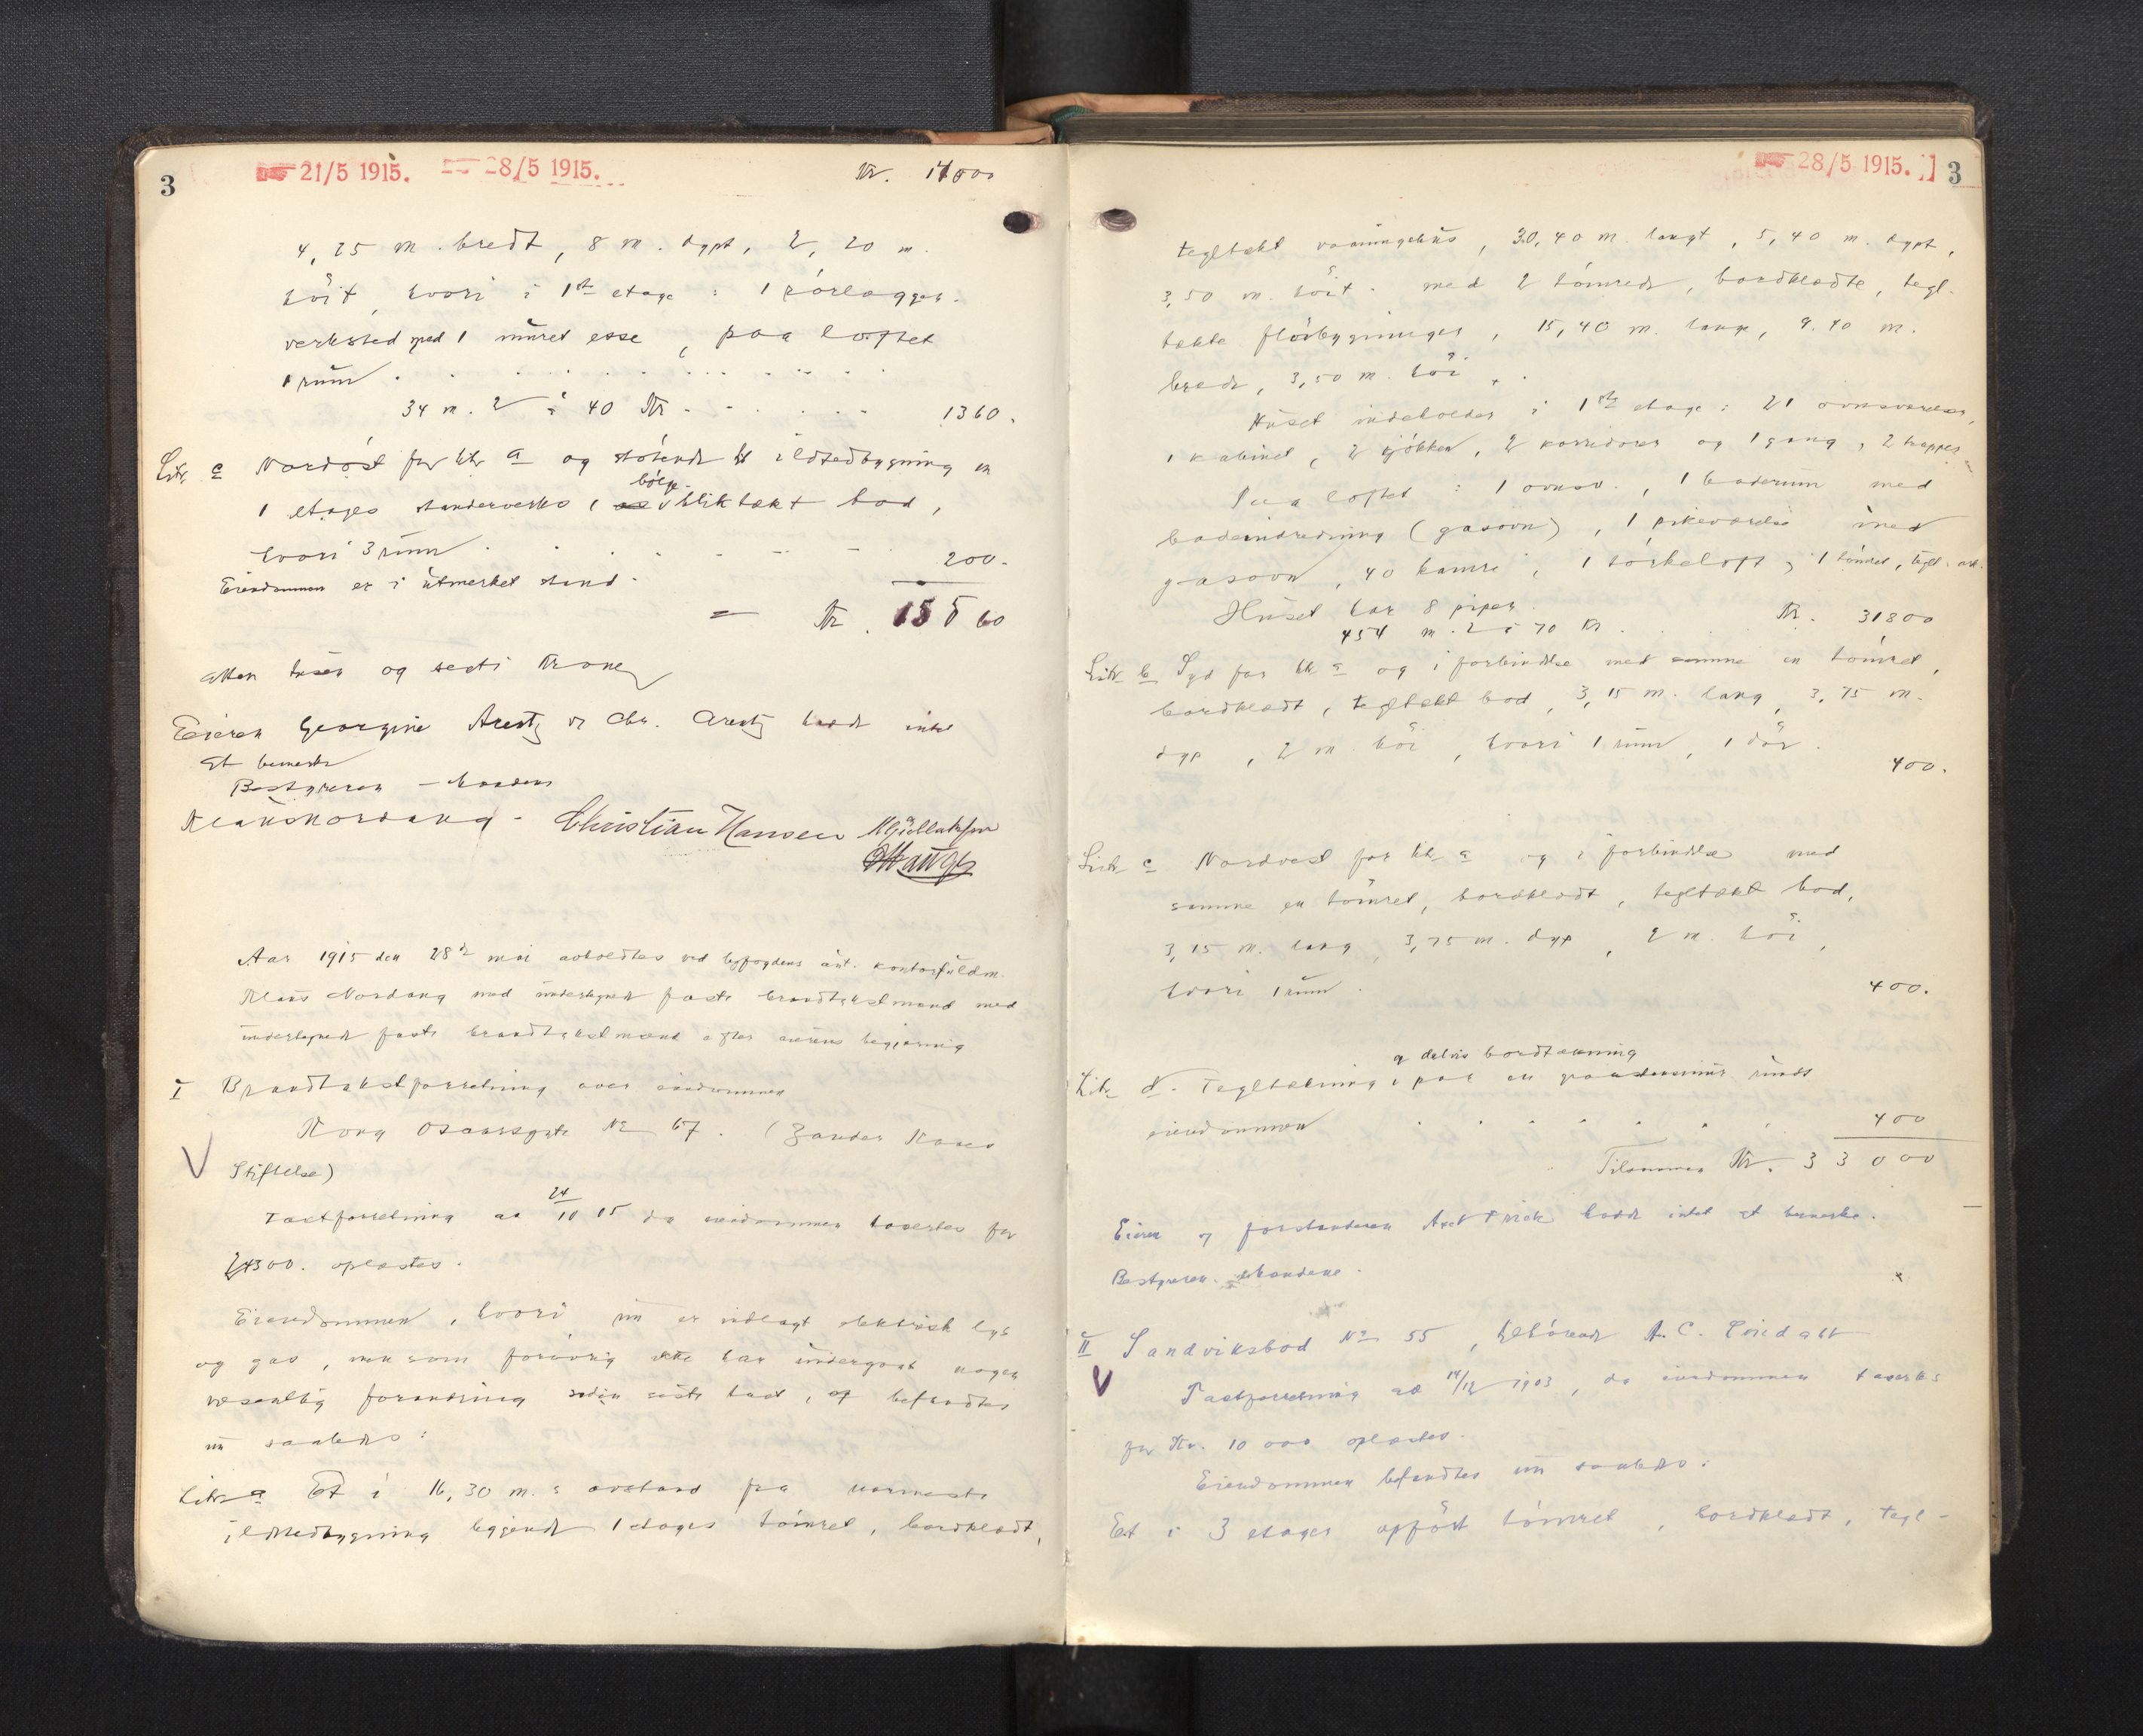 3
21/5 1915. 28/5 1915.
Kr.
4,25 m. bredt, 8 m. dypt, 2,20 m.
höit, hvori i 1ste etage: 1 rörlægger-
verksted med 1 muret esse, paa loftet
1 rum
34 m. 2 à 40 Kr. 1360.
Litr. c Nordöst for litr. a og stötende til ildstedbygning en
bölge-
1 etages stenderverks, blikttækt bod,
hvori 3 rum 200.
Eiendommen er i utmerket stand.
= Kr.
atten tusen og seksti Kroner
Eieren Georgine Arentz v Chr. Arentz hadde intet
at bemerke
Bestyreren - Mandens
Klaus Nordang - Christian Hansen
Hauge
Aar 1915 den 28de mai avholdtes ved byfogdens aut. kontorfuldm.
Klaus Nordang med undertegnede faste brandtakstmænd med
undertegnede faste brandtakstmænd efter eierens begjæring
I Brandtakstforretning over eiendommen
Kong Oscarsgate No 67. (Zander Kaaes
Stiftelse)
Takstforretning av 24/10 15 da eiendommen taxertes for
24300. oplæstes.
Eiendommen, hvori nu er indlagt elektrisk lys
og gas, men som forövrig ikke har undergaat nogen
væsentlig forandring siden siste takst, befandtes
nu saaledes:
Litr. a Et i 16,30 m.s avstand fra nærmeste
ildstedbygning liggende 1 etages tömret, bordklædt,
28/5 1915. 3
tegltækt vaaningshus, 30,40 m. langt, 5,40 m. dypt,
3,50 m. höit. med 2 tömrede, bordklædte, tegl-
tækte flöibygninger, 15,40 m. lange, 9.40 m.
brede, 3,50 m. höi.
Huset indeholder i 1ste etage: 21 ovnsværelser,
1 kabinet, 2 kjökken, 2 korridorer og 1 gang, 2 trapper,
Paa loftet: 1 ovnsv., 1 baderum med
badeindredning (gasovn), 1 pikeværelse med
gasovn, 40 kamre, 1 törkeloft, 1 tömret, tegl.
Huset har 8 piper.
454 m. 2 à 70 Kr. Kr. 31800
Litr. b Syd for litr a og i forbindelse med samme en tömret,
bordklædt, tegltækt bod, 3,15 m. lang, 3,75 m.
dyp, 2 m höi, hvori 1 rum, 1 dör.
400.
Litr c Nordvest for litr. a og i forbindelse med
samme en tömret, bordklædt, tegltækt bod,
3,15 m. lang, 3,75 m. dyp, 2 m. höi,
hvori 1 rum. 400.
og delvis bordtækning
Litr. d. Tegltækning paa en grandemur rundt
eiendommen 400
Tilsammen Kr. 33000
Eieren og forstanderen Axel hadde intet at bemerke.
Bestyreren Mandene.
II Sandviksbod No 55, tilhörende A. C.
Takstforretning av 14/12 1903, da eiendommen taxertes
for Kr. 10 000 oplæstes.
Eiendommen befandtes nu saaledes:
Et i 3 etager opfört tömret, bordklædt, tegl-